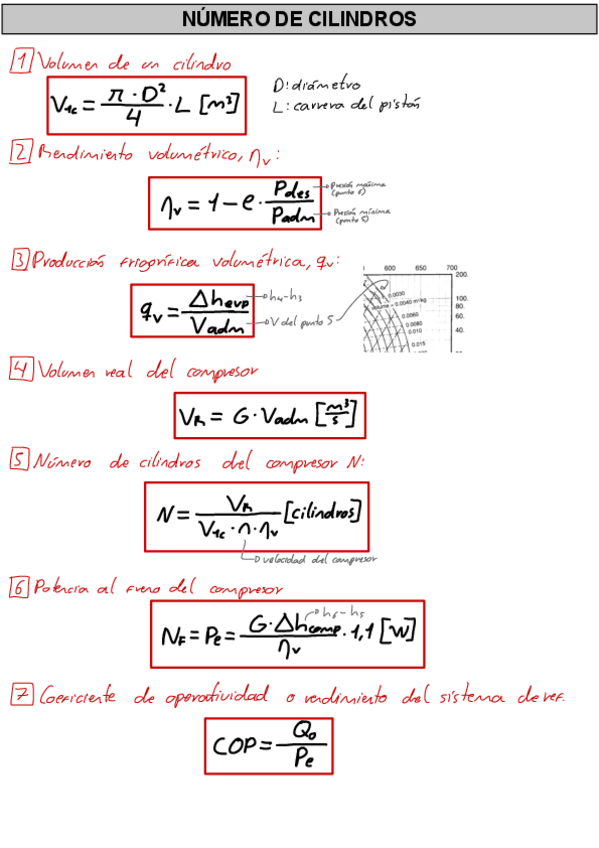 NÚMERO DE CILINDROS
1 Volumen de un cilindro
V1c = π · D² / 4 · L [m³]
D: diámetro
L: carrera del pistón
2 Rendimiento volumétrico, ηv:
ηv = 1 - e · Pdes / Padm
Presión máxima
(punto 6)
Presión mínima
(punto 5)
3 Producción frigorífica volumétrica, qv:
qv = Δhevp / Vadm
h4-h3
V del punto 5
600 650 700
200.
100.
80.
60.
40.
0.0030
volume = 0.0040 m³/kg
0.0060
0.0080
0.010
0.015
4 Volumen real del compresor
VR = G · Vadm [m³/s]
5 Número de cilindros del compresor N:
N = VR / V1c · n · ηv [cilindros]
velocidad del compresor
6 Potencia al freno del compresor
h6-h5
NF = Pe = G · Δhcomp / ηv · 1,1 [W]
7 Coeficiente de operatividad o rendimiento del sistema de ref.
COP = Qo / Pe